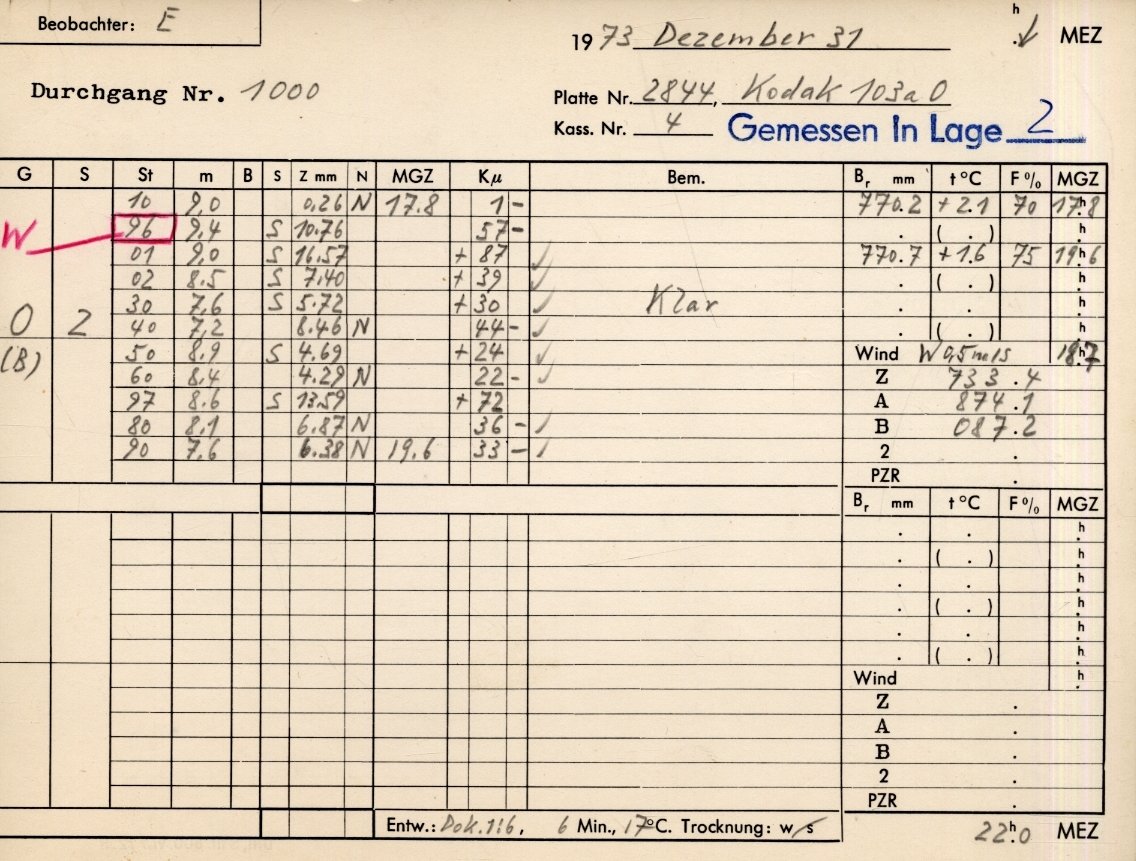 Beobachter: E
19 73 Dezember 31 h . MEZ
Durchgang Nr. 1000
Platte Nr. 2844, Kodak 103a0
Kass. Nr. 4
Gemessen In Lage 2
G S St m B S Z mm N MGZ Kμ Bem. Br mm t°C F% MGZ
10 9,0 0.26 N 17.8 1 - 770.2 + 2.1 70 17h8
W 96 9,4 S 10.76 57 - . ( . ) h.
01 9,0 S 16.57 + 87 ✓ 770.7 + 1.6 75 19h6
02 8.5 S 7.40 + 39 ✓ . ( . ) h.
30 7,6 S 5.72 + 30 ✓ Klar . . h.
O 2 40 7,2 8.46 N 44 - ✓ . ( . ) h.
(B) 50 8,9 S 4.69 + 24 ✓ Wind W 0,5 m/s 18h7
60 8,4 4.29 N 22 - ✓ Z 733.4
97 8.6 S 13.59 + 72 A 874.1
80 8,1 6.87 N 36 - ✓ B 087.2
90 7,6 6.38 N 19,6 33 - ✓ 2 .
PZR .
Br mm t°C F% MGZ
. . h.
. ( . ) h.
. . h.
. ( . ) h.
. . h.
. ( . ) h.
Wind h.
Z .
A .
B .
2 .
PZR .
Entw.: Dok. 1:6, 6 Min., 17°C. Trocknung: w/s
22h.0 MEZ